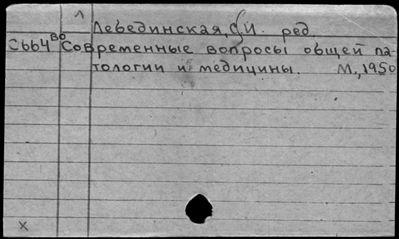 Лебединская, С.И. ред.
С664 во Современные вопросы общей па-
тологии и медицины. М., 1950
x